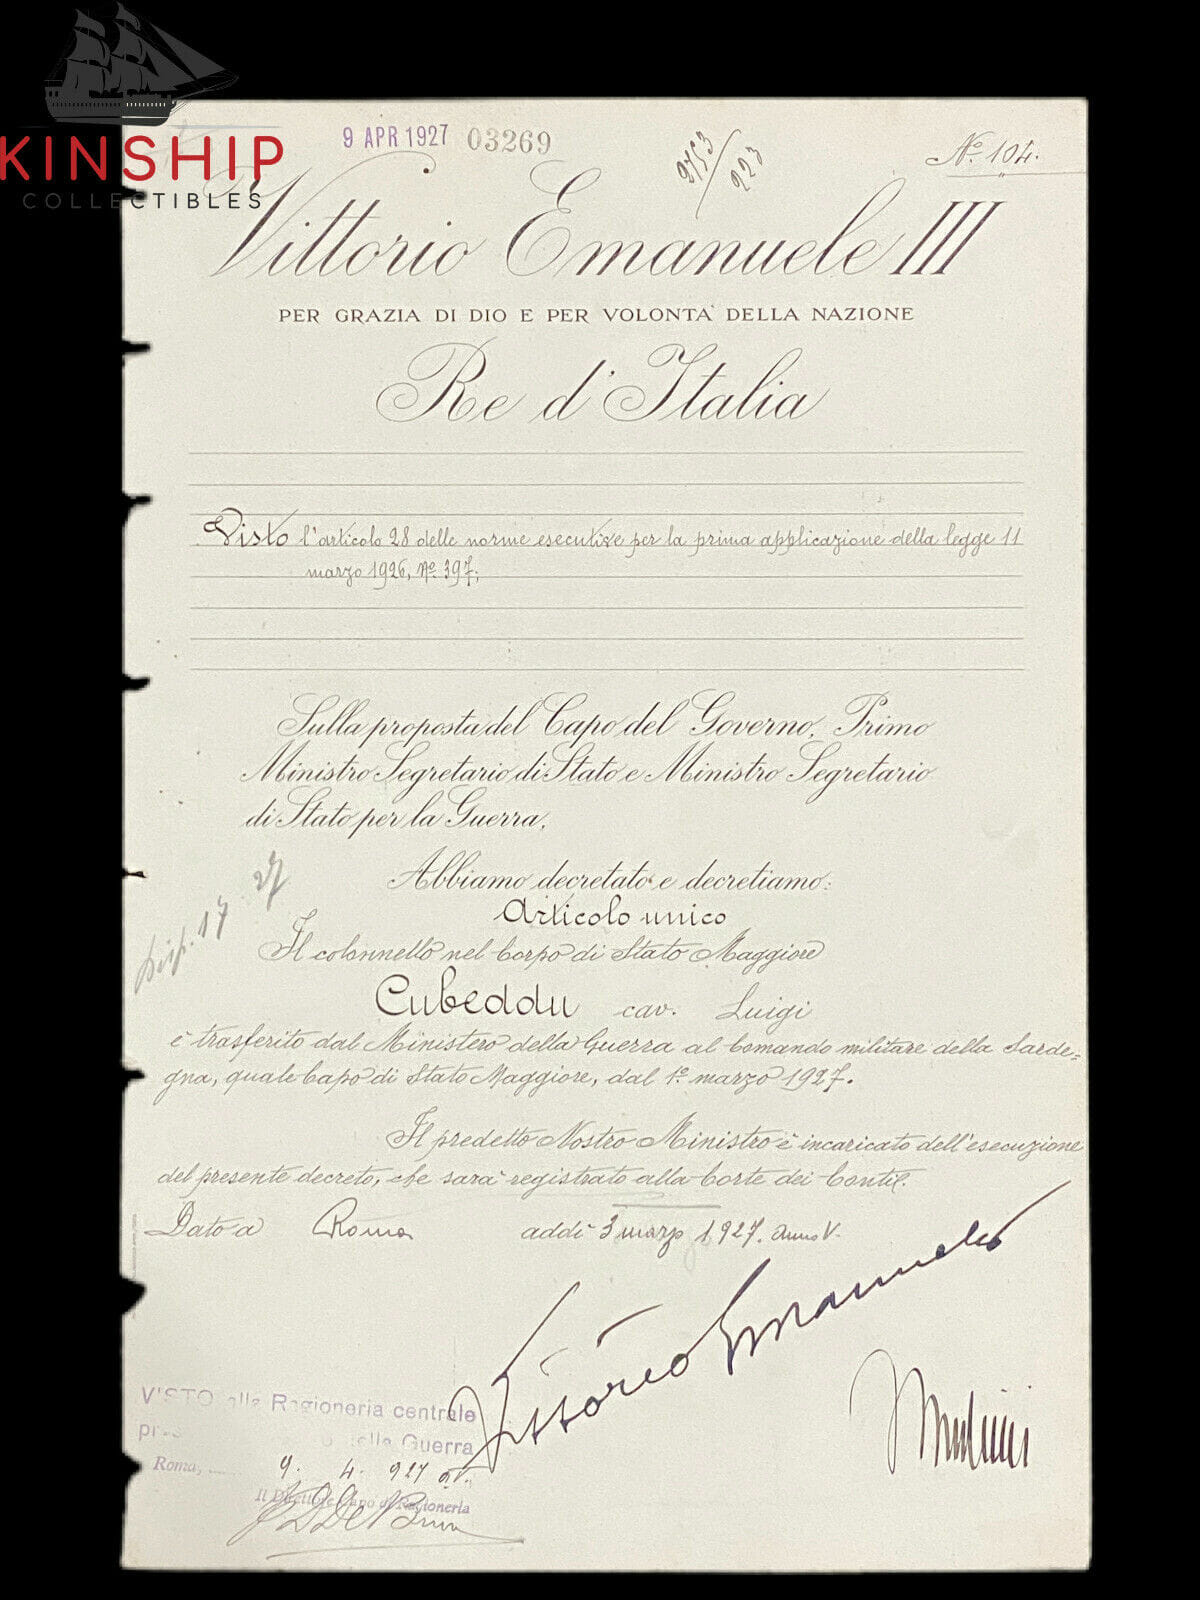 KINSHIP
COLLECTIBLES
9 APR 1927 03269
2753/223
N.º 104.
Vittorio Emanuele III
PER GRAZIA DI DIO E PER VOLONTA' DELLA NAZIONE
Re d'Italia
Visto l'articolo 28 delle norme esecutive per la prima applicazione della legge 11
marzo 1926, Nº 397;
Sulla proposta del Capo del Governo, Primo
Ministro Segretario di Stato e Ministro Segretario
di Stato per la Guerra,
Abbiamo decretato e decretiamo:
Articolo unico
Il colonnello nel Corpo di Stato Maggiore
Cubeddu cav. Luigi
è trasferito dal Ministero della Guerra al Comando militare della Sarde=
gna, quale Capo di Stato Maggiore, dal 1º marzo 1927.
Disp. 17 27
Il predetto Nostro Ministro è incaricato dell'esecuzione
del presente decreto, che sarà registrato alla Corte dei Conti.
Dato a Roma addì 3 marzo 1927. Anno V.
Vittorio Emanuele
Mussolini
VISTO alla Ragioneria centrale
della Guerra
Roma, 9. 4. 927
Il Direttore Capo di Ragioneria